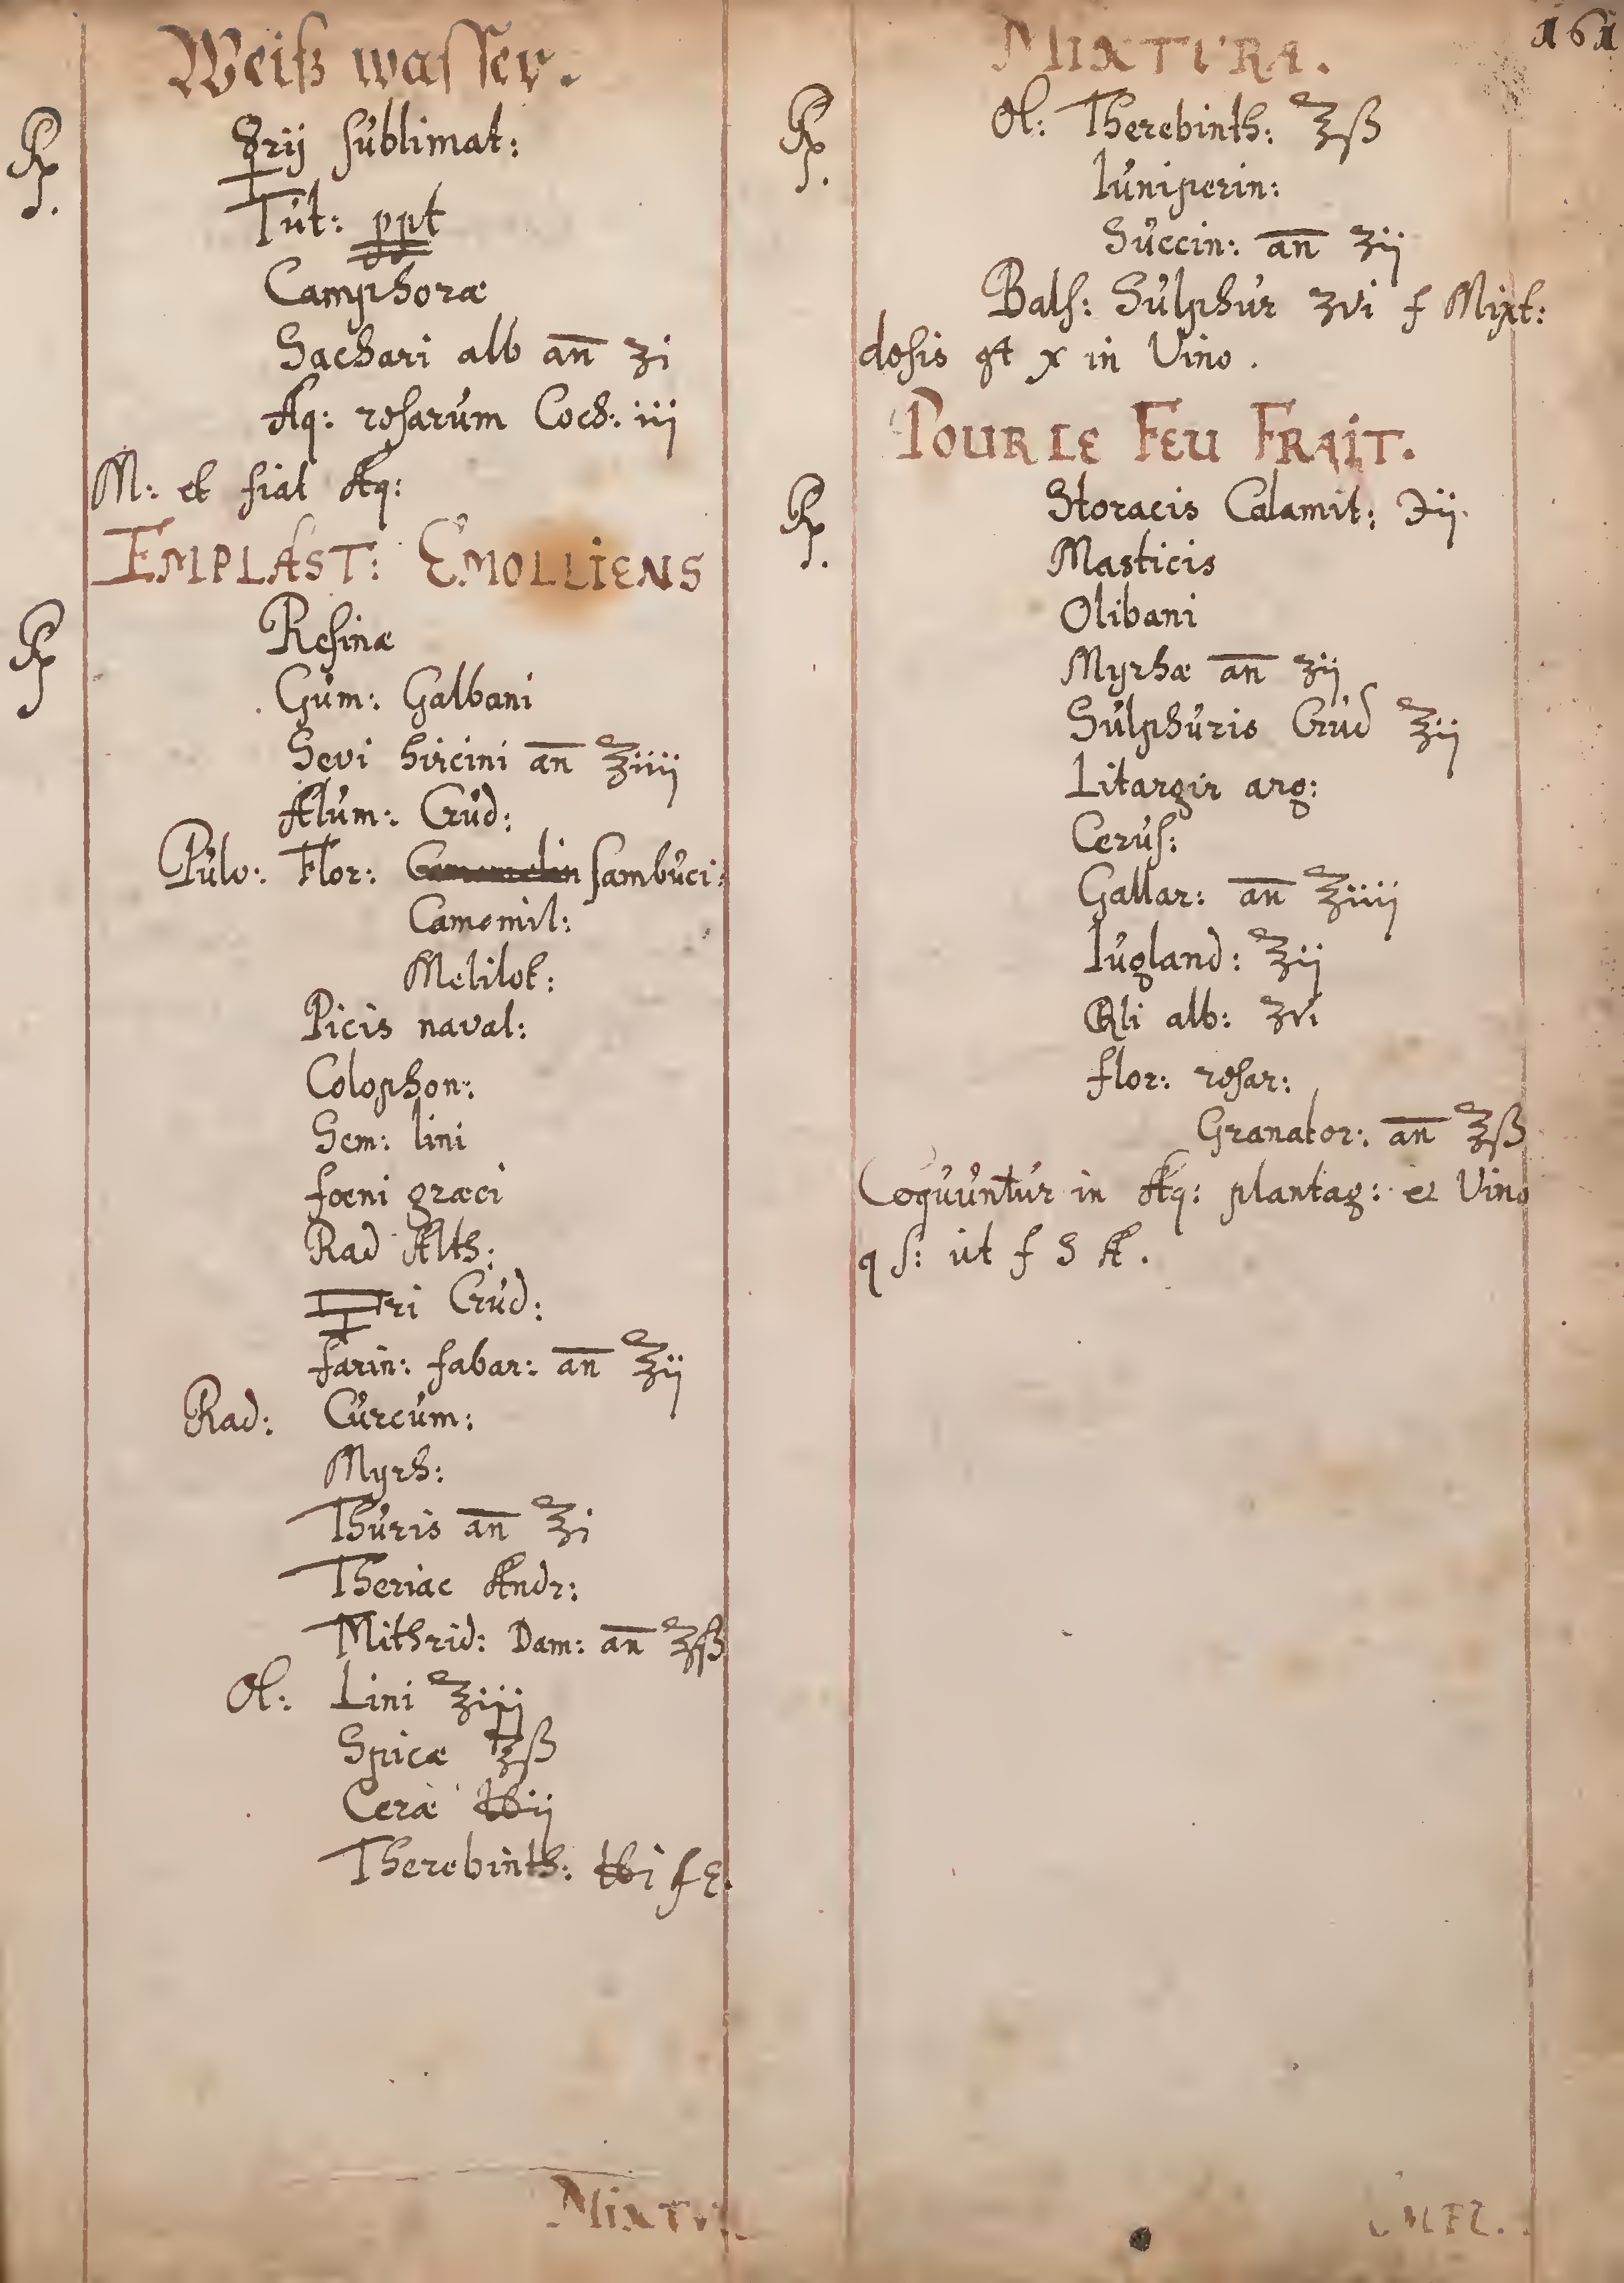 161
Weiß wasser.
℞. ☿rij sublimat:
Tut: ppt
Camphoræ
Sachari alb an̄ ʒi
Aq: rosarum Coch: iij
M: et fiat Aq:
EMPLAST: EMOLLIENS
℞ Resinæ
Gum: Galbani
Sevi hircini an̄ ℥iiij
Alum: Crud:
Pulv: Flor: sambuci:
Camomil:
Melilot:
Picis naval:
Colophon:
Sem: lini
fœni græci
Rad Alth:
🜍ri Crud:
farin: fabar: an̄ ℥ij
Rad: Curcum:
Myrh:
Thuris an̄ ℥i
Theriac Andr:
Mithrid: Dam: an̄ ℥ß
Ol: Lini ℥iij
Spicæ ℥ß
Ceræ ℔ij
Therebinth: ℔i f E.
MIXTU
MIXTURA.
℞. Ol: Therebinth: ℥ß
Iuniperin:
Succin: an̄ ʒij
Bals: Sulphur ʒvi f Mixt:
dosis gt x in Vino.
POUR LE FEU FRAIT.
℞. Storacis Calamit: ℈ij.
Masticis
Olibani
Myrhæ an̄ ʒij
Sulphuris Crud ℥ij
Litargir arg:
Cerus:
Gallar: an̄ ℥iiij
Iugland: ℥ij
Qli alb: ʒvi
flor: rosar:
Granator: an̄ ℥ß
Coquuntur in Aq: plantag: et Vino
q s: ut f S A.